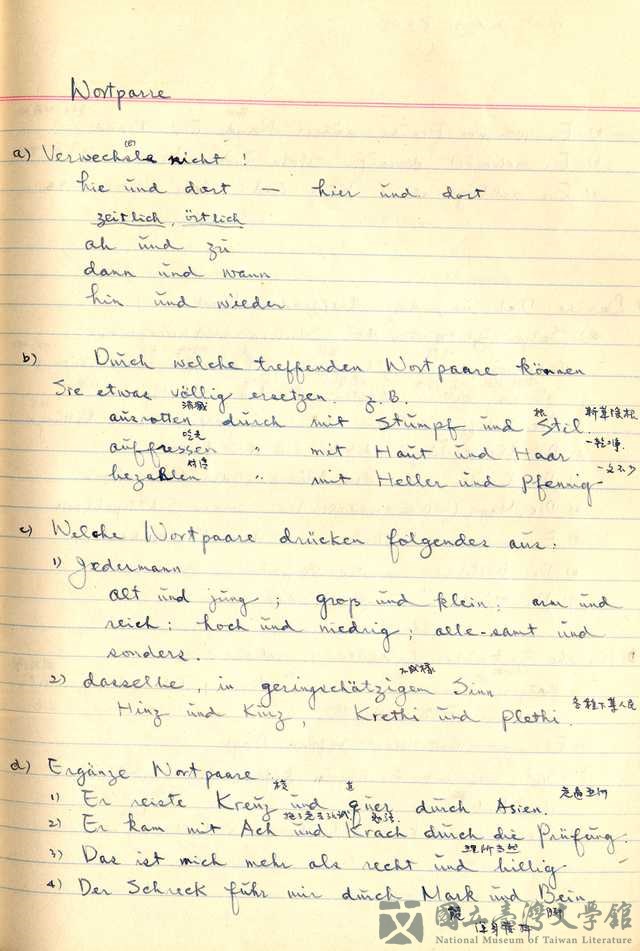 Wortpaare
a) Verwechsle nicht!
hie und dort — hier und dort
zeitlich, örtlich
ab und zu
dann und wann
hin und wieder
b) Durch welche treffenden Wortpaare können
Sie etwas völlig ersetzen. z.B.
消滅 根 斬草除根
ausrotten durch mit Stumpf und Stil.
吃光
auffressen " mit Haut und Haar
付清 一文不少
bezahlen " mit Heller und Pfennig
c) Welche Wortpaare drücken folgendes aus:
1) Jedermann
alt und jung; groß und klein; arm und
reich; hoch und niedrig; alle-samt und
sonders.
2) dasselbe, in geringschätzigem Sinn
Hinz und Kunz, Krethi und Plethi. 各種下等人民
d) Ergänze Wortpaare
走遍亞洲
1) Er reiste Kreuz und quer durch Asien.
2) Er kam mit Ach und Krach durch die Prüfung.
理所當然
3) Das ist mich mehr als recht und billig
4) Der Schreck fuhr mir durch Mark und Bein
髓 脚
國立臺灣文學館
National Museum of Taiwan Literature